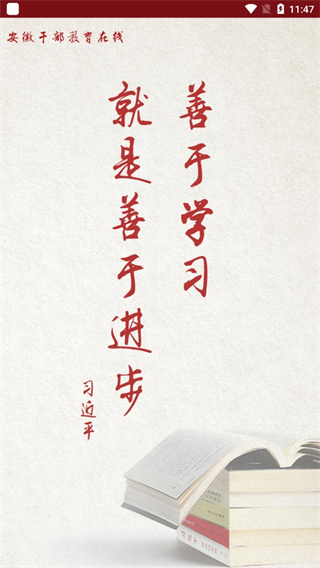 11:47
安徽干部教育在线
善于学习
就是善于进步
习近平